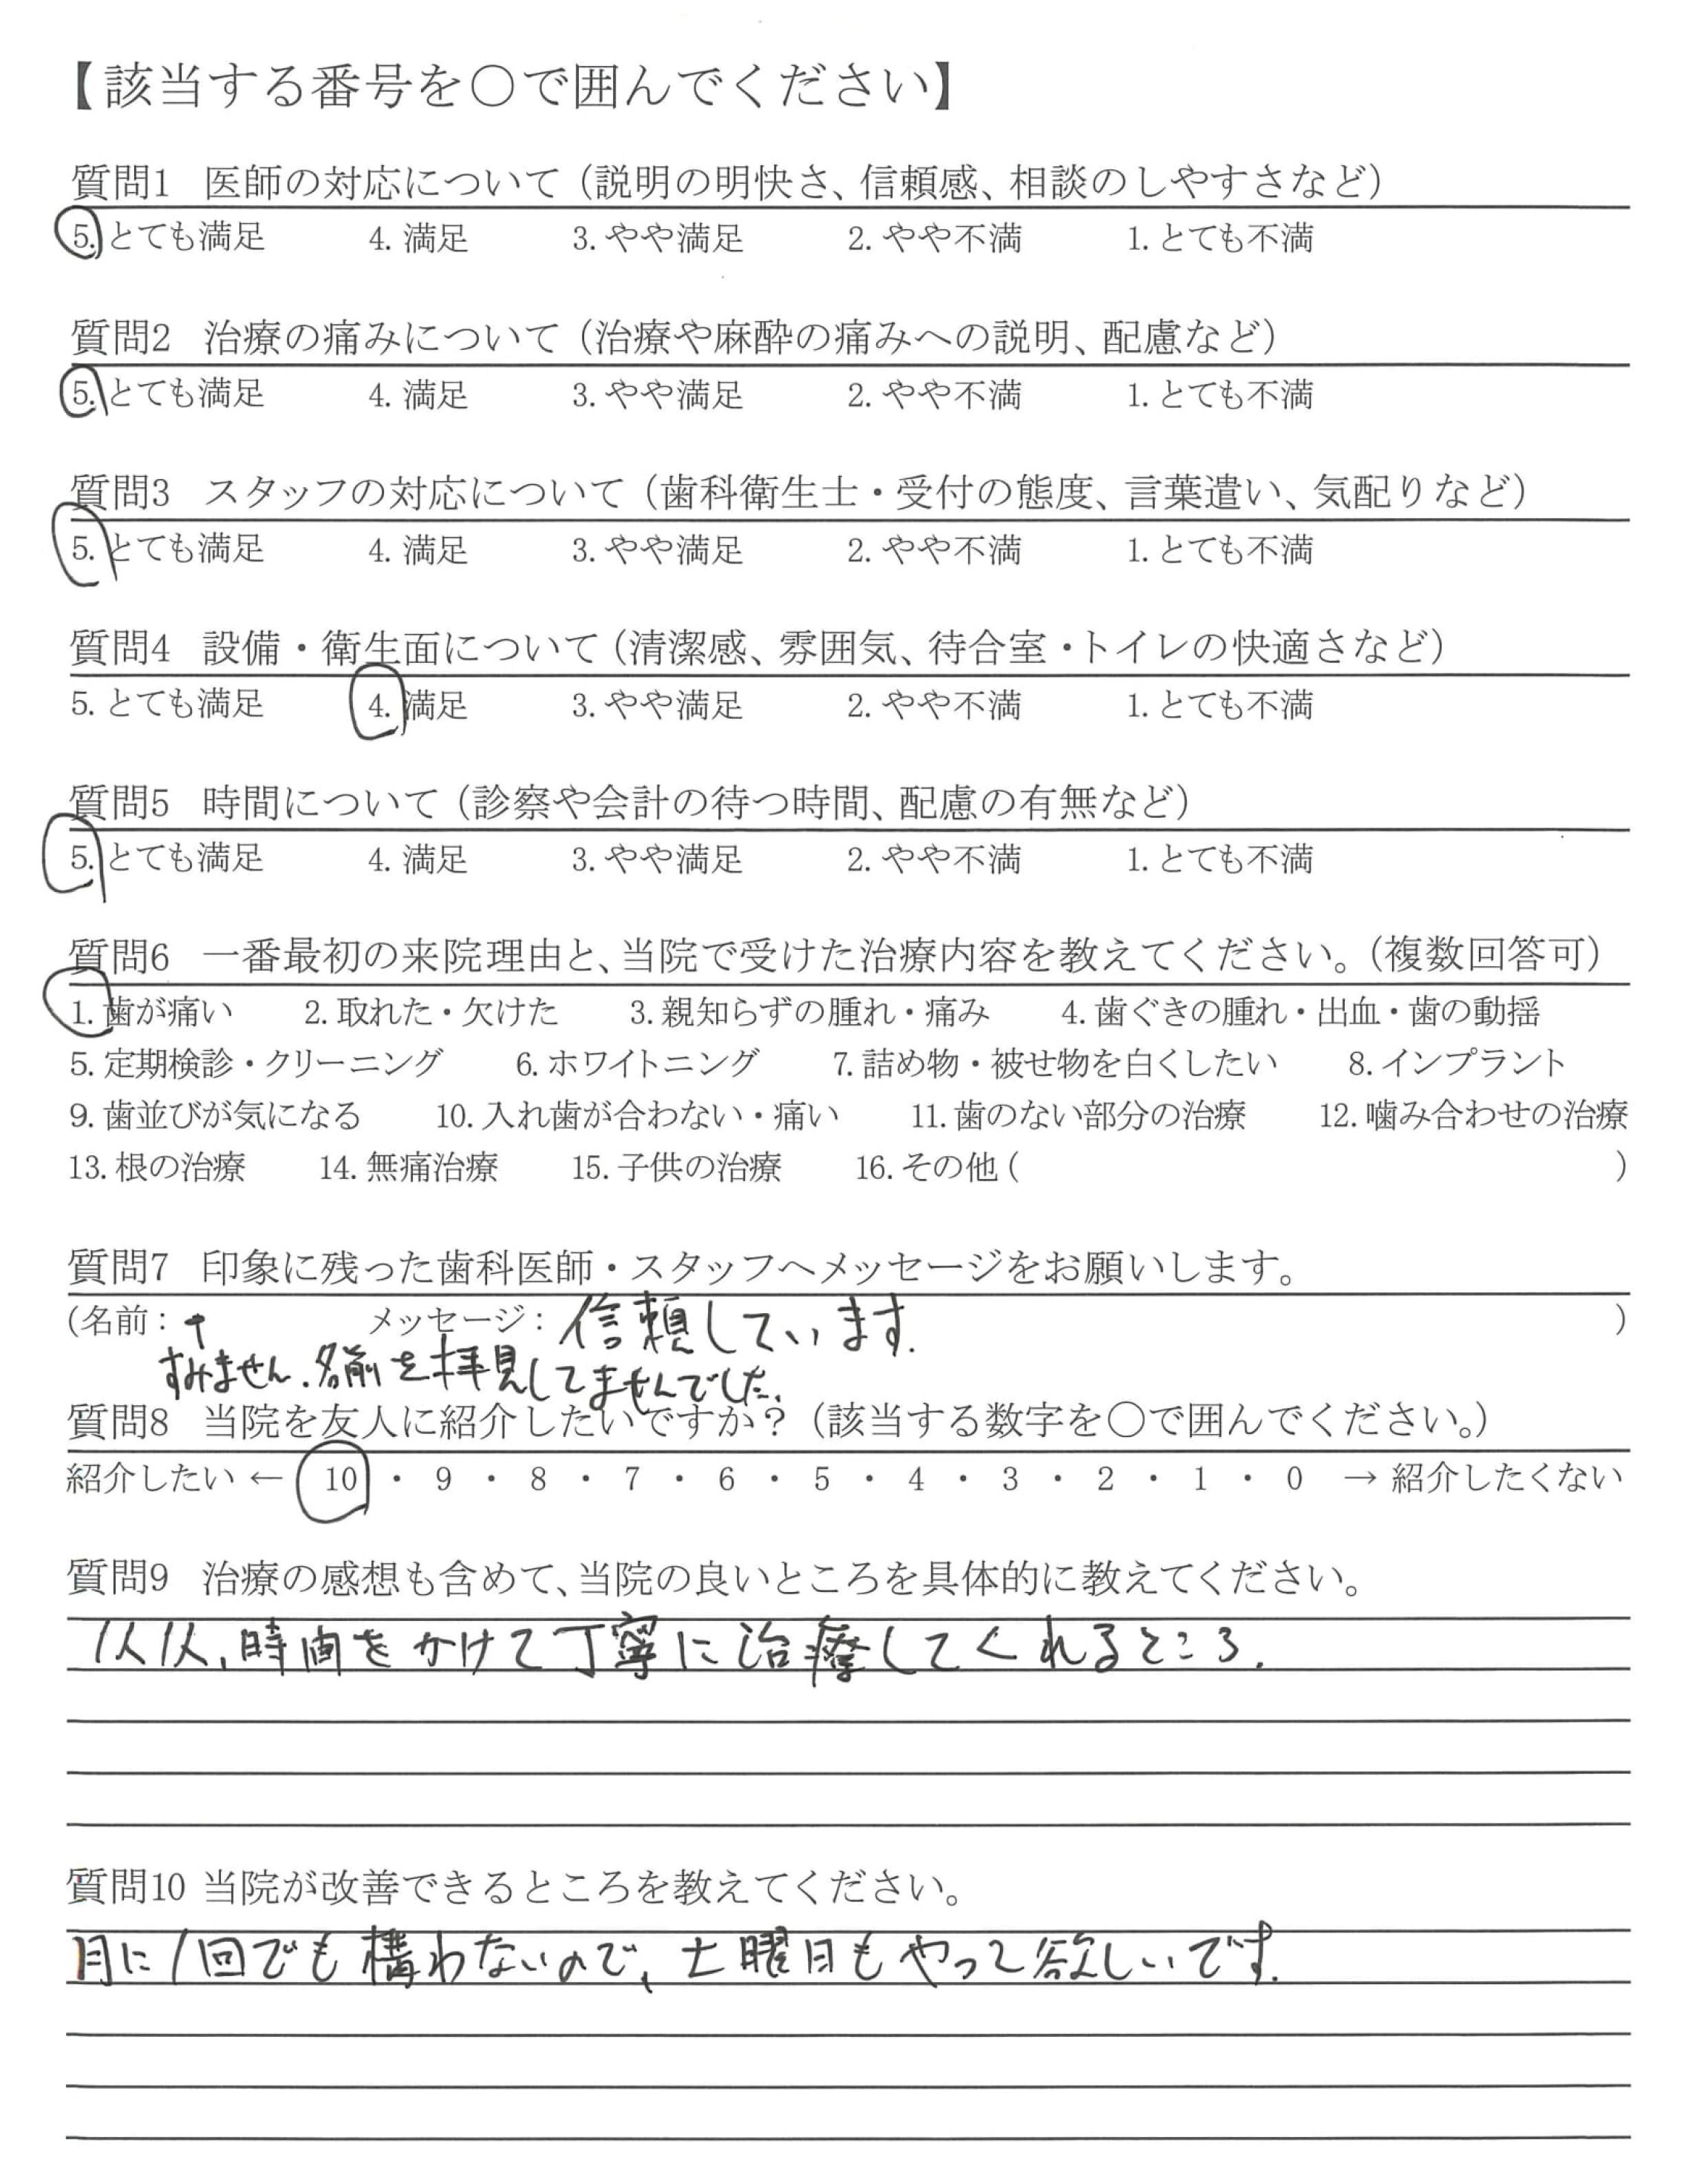 【該当する番号を○で囲んでください】
質問1 医師の対応について（説明の明快さ、信頼感、相談のしやすさなど）
5. とても満足 4. 満足 3. やや満足 2. やや不満 1. とても不満
質問2 治療の痛みについて（治療や麻酔の痛みへの説明、配慮など）
5. とても満足 4. 満足 3. やや満足 2. やや不満 1. とても不満
質問3 スタッフの対応について（歯科衛生士・受付の態度、言葉遣い、気配りなど）
5. とても満足 4. 満足 3. やや満足 2. やや不満 1. とても不満
質問4 設備・衛生面について（清潔感、雰囲気、待合室・トイレの快適さなど）
5. とても満足 4. 満足 3. やや満足 2. やや不満 1. とても不満
質問5 時間について（診察や会計の待つ時間、配慮の有無など）
5. とても満足 4. 満足 3. やや満足 2. やや不満 1. とても不満
質問6 一番最初の来院理由と、当院で受けた治療内容を教えてください。（複数回答可）
1. 歯が痛い 2. 取れた・欠けた 3. 親知らずの腫れ・痛み 4. 歯ぐきの腫れ・出血・歯の動揺
5. 定期検診・クリーニング 6. ホワイトニング 7. 詰め物・被せ物を白くしたい 8. インプラント
9. 歯並びが気になる 10. 入れ歯が合わない・痛い 11. 歯のない部分の治療 12. 噛み合わせの治療
13. 根の治療 14. 無痛治療 15. 子供の治療 16. その他 ( )
質問7 印象に残った歯科医師・スタッフへメッセージをお願いします。
(名前： ↑ メッセージ： 信頼しています. )
すみません. 名前を拝見してませんでした.
質問8 当院を友人に紹介したいですか？（該当する数字を○で囲んでください。）
紹介したい ← 10 ・ 9 ・ 8 ・ 7 ・ 6 ・ 5 ・ 4 ・ 3 ・ 2 ・ 1 ・ 0 → 紹介したくない
質問9 治療の感想も含めて、当院の良いところを具体的に教えてください。
時間をかけて丁寧に治療してくれるところ.
質問10 当院が改善できるところを教えてください。
月に1回でも構わないので、土曜日もやって欲しいです.